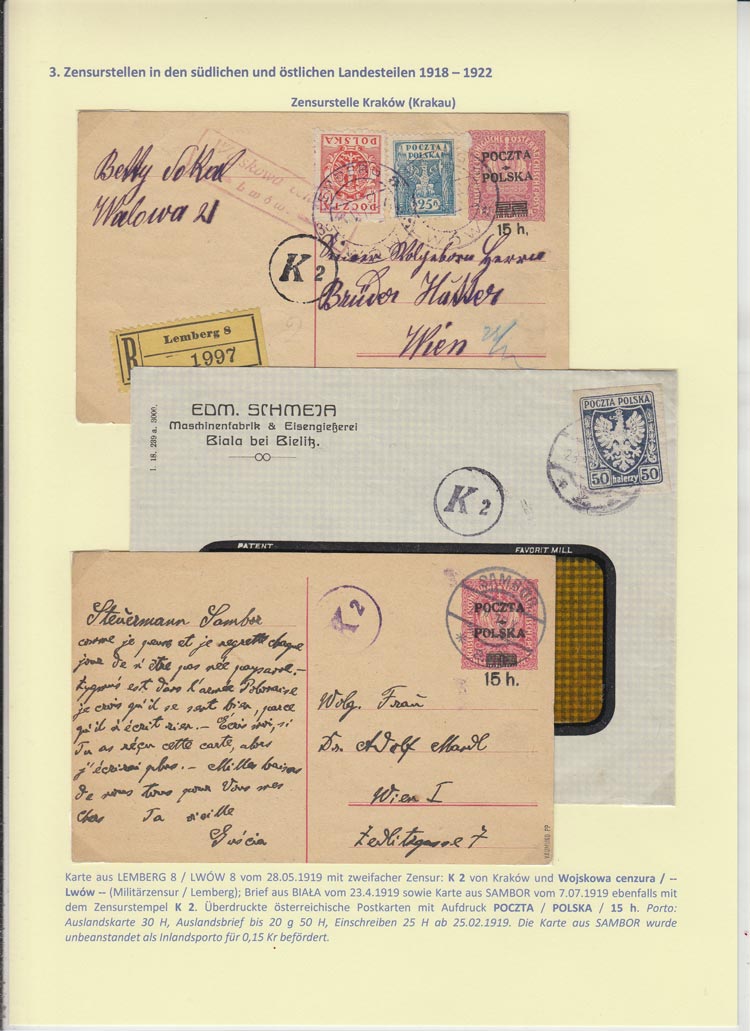 3. Zensurstellen in den südlichen und östlichen Landesteilen 1918 – 1922
Zensurstelle Kraków (Krakau)
Betty Sokal
Walowa 21
Wojskowa
Lwów.
POLSKA
POCZTA
POCZTA
POLSKA
25
POCZTA
POLSKA
15 h.
K 2
Seiner Wolgeborn Herrn
Brüder Hatter
Wien
R
Lemberg 8
1997
1. 18, 239 a. 3000.
EDM. SCHMEJA
Maschinenfabrik & Eisengießerei
Biala bei Bielitz.
POCZTA POLSKA
50 halerzy 50
K 2
PATENT
FAVORIT MILL
Steuermann Sambor
comme je peux et je regrette chaque
jour de n'être pas née paysanne.-
est dans l'armée Polonaise
je crois qu'il se sent bien, parce
qu'il n'écrit rien. – Ecris moi, si
Tu as reçu cette carte, alors
j'écrirai plus. – Milles baisers
de nous tous pour Vous mes
chers Ta vieille
K 2
SAMBOR
POCZTA
POLSKA
15 h.
Wolg. Frau
Dr. Adolf Mandl
Wien I
Zedlitzgasse 7
Karte aus LEMBERG 8 / LWÓW 8 vom 28.05.1919 mit zweifacher Zensur: K 2 von Kraków und Wojskowa cenzura / --
Lwów -- (Militärzensur / Lemberg); Brief aus BIAŁA vom 23.4.1919 sowie Karte aus SAMBOR vom 7.07.1919 ebenfalls mit
dem Zensurstempel K 2. Überdruckte österreichische Postkarten mit Aufdruck POCZTA / POLSKA / 15 h. Porto:
Auslandskarte 30 H, Auslandsbrief bis 20 g 50 H, Einschreiben 25 H ab 25.02.1919. Die Karte aus SAMBOR wurde
unbeanstandet als Inlandsporto für 0,15 Kr befördert.